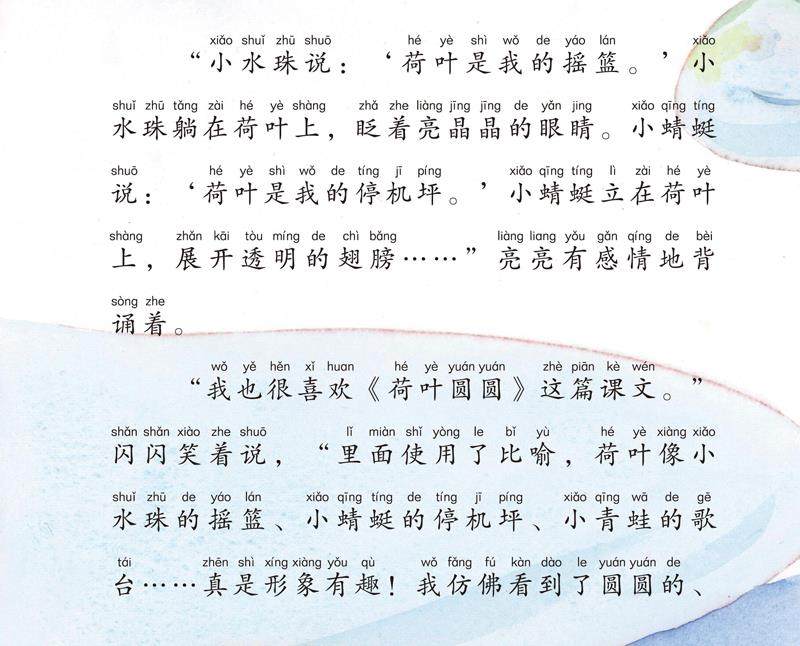 xiǎo shuǐ zhū shuō hé yè shì wǒ de yáo lán xiǎo
“小水珠说：‘荷叶是我的摇篮。’小
shuǐ zhū tǎng zài hé yè shàng zhǎ zhe liàng jīng jīng de yǎn jing xiǎo qīng tíng
水珠躺在荷叶上，眨着亮晶晶的眼睛。小蜻蜓
shuō hé yè shì wǒ de tíng jī píng xiǎo qīng tíng lì zài hé yè
说：‘荷叶是我的停机坪。’小蜻蜓立在荷叶
shàng zhǎn kāi tòu míng de chì bǎng liàng liang yǒu gǎn qíng de bèi
上，展开透明的翅膀……”亮亮有感情地背
sòng zhe
诵着。
wǒ yě hěn xǐ huan hé yè yuán yuán zhè piān kè wén
“我也很喜欢《荷叶圆圆》这篇课文。”
shǎn shǎn xiào zhe shuō lǐ miàn shǐ yòng le bǐ yù hé yè xiàng xiǎo
闪闪笑着说，“里面使用了比喻，荷叶像小
shuǐ zhū de yáo lán xiǎo qīng tíng de tíng jī píng xiǎo qīng wā de gē
水珠的摇篮、小蜻蜓的停机坪、小青蛙的歌
tái zhēn shì xíng xiàng yǒu qù wǒ fǎng fú kàn dào le yuán yuán de
台……真是形象有趣！我仿佛看到了圆圆的、